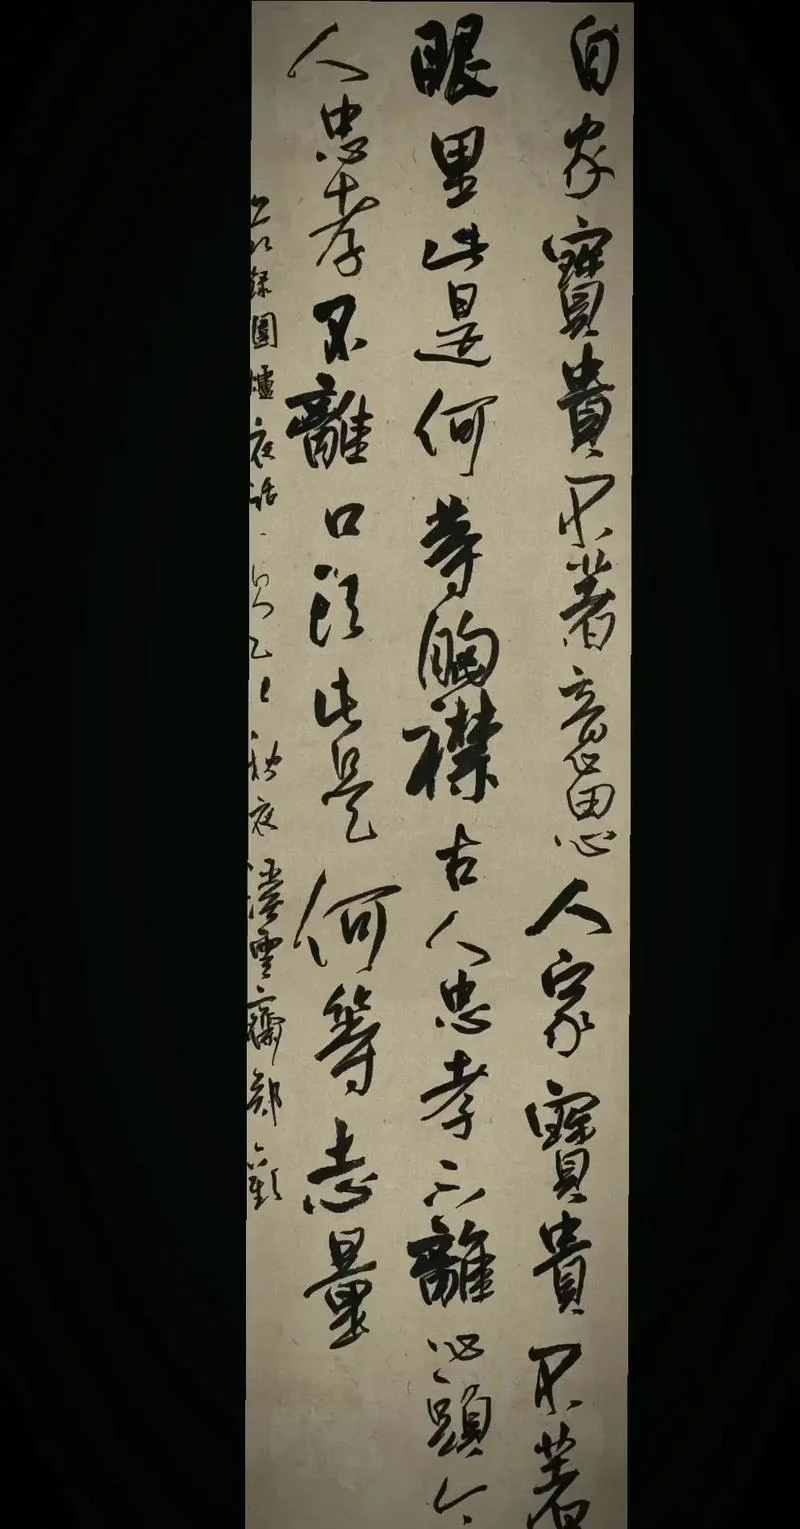 自家寶貴不著意思人家寶貴不著
眼里此是何等胸襟古人忠孝不離心頭今
人忠孝不離口頭此是何等志量
錄圍爐夜話乙巳秋夜雲齋鄭